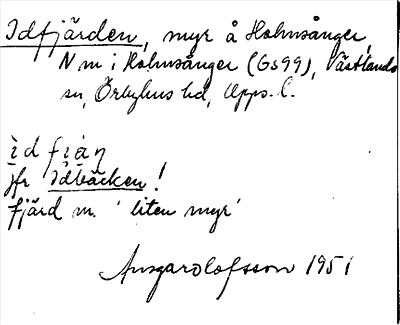 Idfjärden, myr å Holmsånger,
N m i Holmsånger (Gs 99), Västlands
sn, Örbyhus hd, Upps. l.
ìd fiàṇ
jfr Idbäcken!
fjärd m. 'liten myr'
Ansgar Olofsson 1951